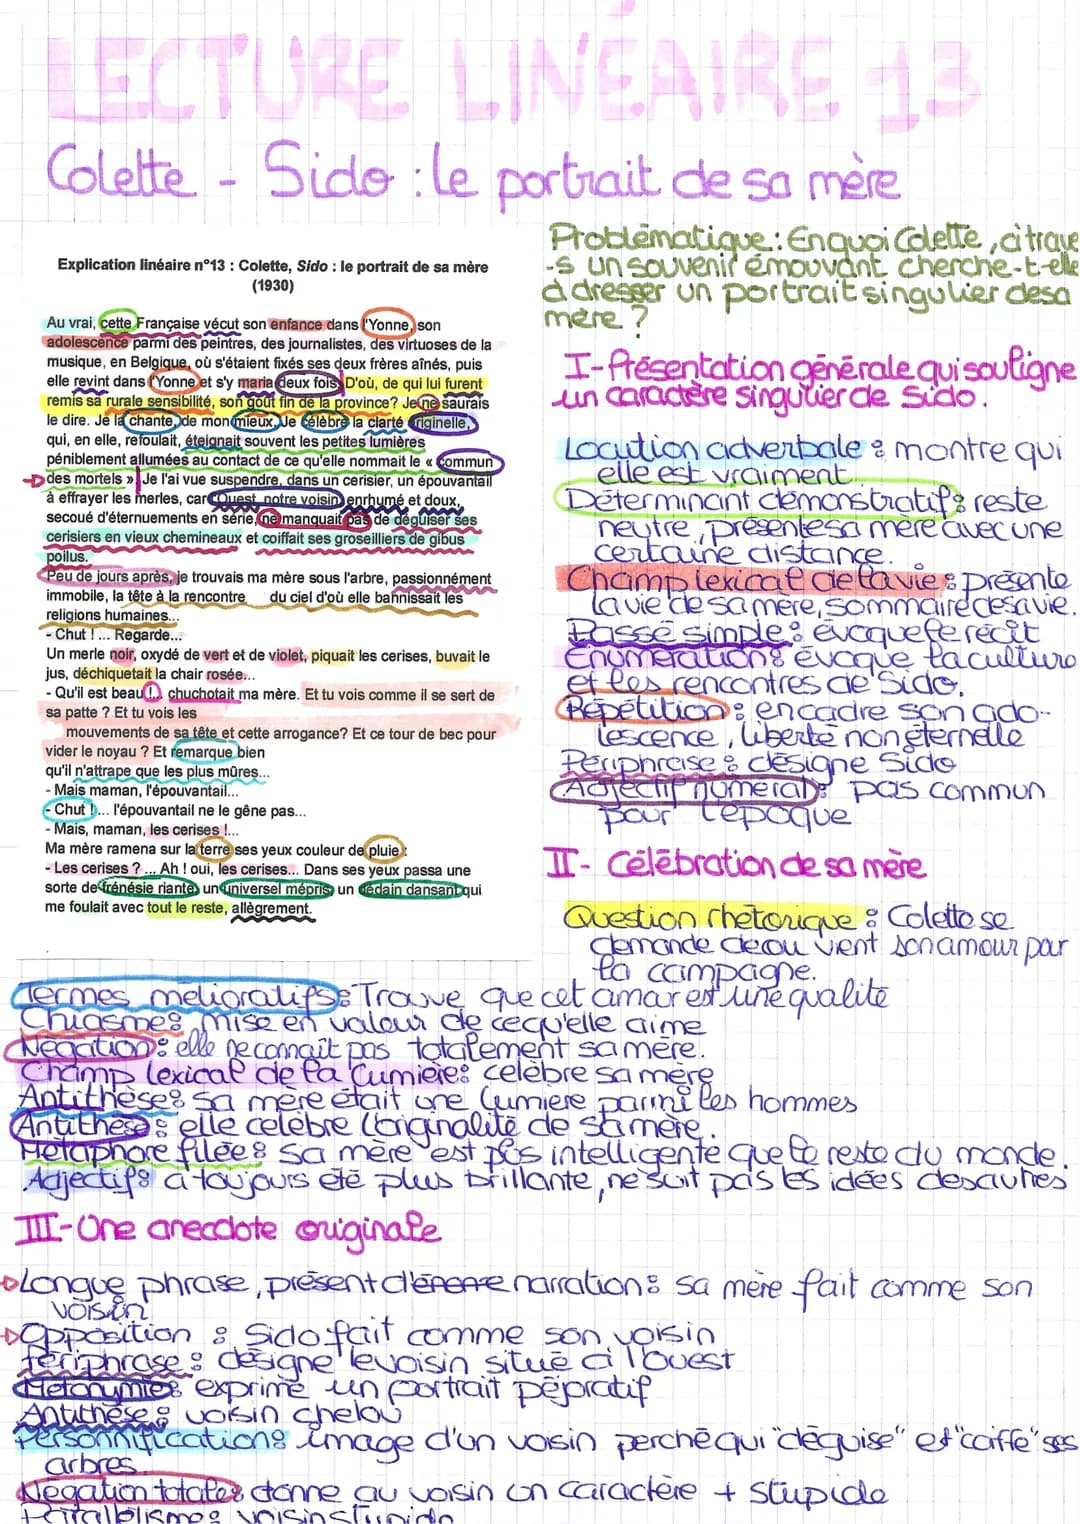 LECTURE LINÉAIRE 13
Colette - Sido : le portrait de sa mère
Explication linéaire n°13 : Colette, Sido : le portrait de sa mère
(1930)
Au vrai, cette Française vécut son enfance dans l'Yonne, son
adolescence parmi des peintres, des journalistes, des virtuoses de la
musique, en Belgique, où s'étaient fixés ses deux frères aînés, puis
elle revint dans l'Yonne et s'y maria deux fois. D'où, de qui lui furent
remis sa rurale sensibilité, son goût fin de la province? Je ne saurais
le dire. Je la chante, de mon mieux. Je célèbre la clarté originelle,
qui, en elle, refoulait, éteignait souvent les petites lumières
péniblement allumées au contact de ce qu'elle nommait le « commun
des mortels ». Je l'ai vue suspendre, dans un cerisier, un épouvantail
à effrayer les merles, car l'Ouest, notre voisin, enrhumé et doux,
secoué d'éternuements en série, ne manquait pas de déguiser ses
cerisiers en vieux chemineaux et coiffait ses groseilliers de gibus
poilus.
Peu de jours après, je trouvais ma mère sous l'arbre, passionnément
immobile, la tête à la rencontre du ciel d'où elle bannissait les
religions humaines...
- Chut !... Regarde...
Un merle noir, oxydé de vert et de violet, piquait les cerises, buvait le
jus, déchiquetait la chair rosée...
- Qu'il est beau !.. chuchotait ma mère. Et tu vois comme il se sert de
sa patte ? Et tu vois les
mouvements de sa tête et cette arrogance? Et ce tour de bec pour
vider le noyau ? Et remarque bien
qu'il n'attrape que les plus mûres...
- Mais maman, l'épouvantail...
- Chut !... l'épouvantail ne le gêne pas...
- Mais, maman, les cerises !...
Ma mère ramena sur la terre ses yeux couleur de pluie :
- Les cerises ? ... Ah ! oui, les cerises... Dans ses yeux passa une
sorte de frénésie riante, un universel mépris, un dédain dansant qui
me foulait avec tout le reste, allègrement.
Problématique : En quoi Colette, à trave
-s un souvenir émouvant cherche-t-elle
à dresser un portrait singulier de sa
mère ?
I- Présentation générale qui souligne
un caractère singulier de Sido.
Locution adverbale : montre qui
elle est vraiment.
Déterminant démonstratif : reste
neutre, présente sa mère avec une
certaine distance.
Champ lexical de la vie : présente
la vie de sa mère, sommaire de sa vie.
Passé simple : évoque le récit
Énumération : évoque la culture
et les rencontres de Sido.
Répétition : encadre son ado-
lescence, liberté non éternelle
Périphrase : désigne Sido
Adjectif numéral : pas commun
pour l'époque
II- Célébration de sa mère
Question rhétorique : Colette se
demande de où vient son amour par
la campagne.
Termes mélioratifs : Trouve que cet amar est une qualité
Chiasme : mise en valeur de ce qu'elle aime
Négation : elle ne connaît pas totalement sa mère.
Champ lexical de la lumière : célèbre sa mère
Antithèse : sa mère était une lumière parmi les hommes
Antithèse : elle célèbre l'originalité de sa mère.
Métaphore filée : sa mère est plus intelligente que le reste du monde.
Adjectif : a toujours été plus brillante, ne suit pas les idées des autres
III- Une anecdote originale
Longue phrase, présent d'énonc narration : sa mère fait comme son
voisin
Opposition : Sido fait comme son voisin
Périphrase : désigne le voisin situé à l'Ouest
Métonymie : exprime un portrait péjoratif
Antithèse : voisin chelou
Personnification : image d'un voisin perché qui "déguise" et "coiffe" ses
arbres.
Négation totale : donne au voisin un caractère + stupide
Parallélisme : voisin stupide